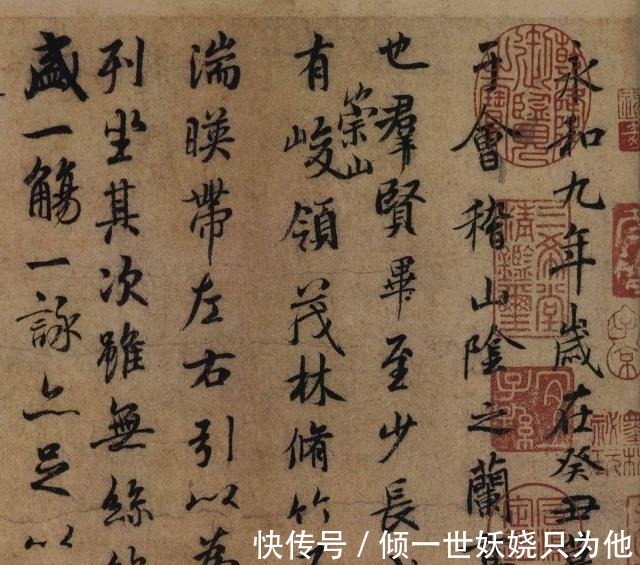 永和九年歲在癸丑
于會稽山陰之蘭
也羣賢畢至少長
有崇山峻領茂林脩竹
湍暎帶左右引以為
列坐其次雖無絲
盛一觴一詠亦足以
快传号 / 倾一世妖娆只为他